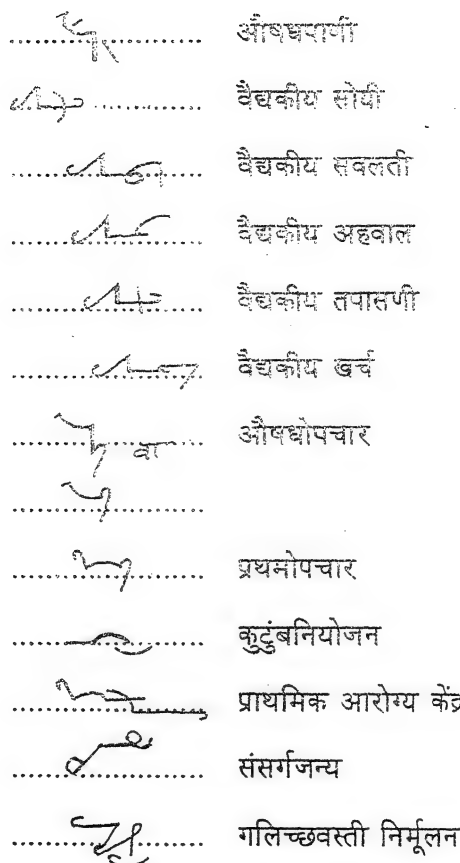 औषधपाणी
वैद्यकीय सोयी
वैद्यकीय सवलती
वैद्यकीय अहवाल
वैद्यकीय तपासणी
वैद्यकीय खर्च
वा औषधोपचार
प्रथमोपचार
कुटुंबनियोजन
प्राथमिक आरोग्य केंद्र
संसर्गजन्य
गलिच्छवस्ती निर्मूलन